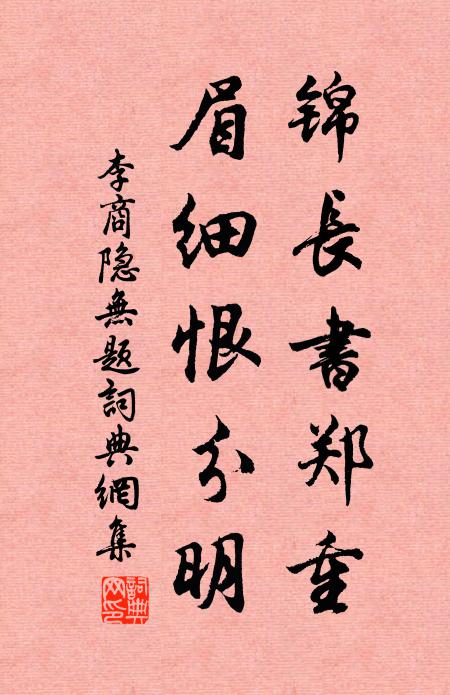 锦長書郑重
眉细恨分明
李商隐無题詞典網集
詞典網印